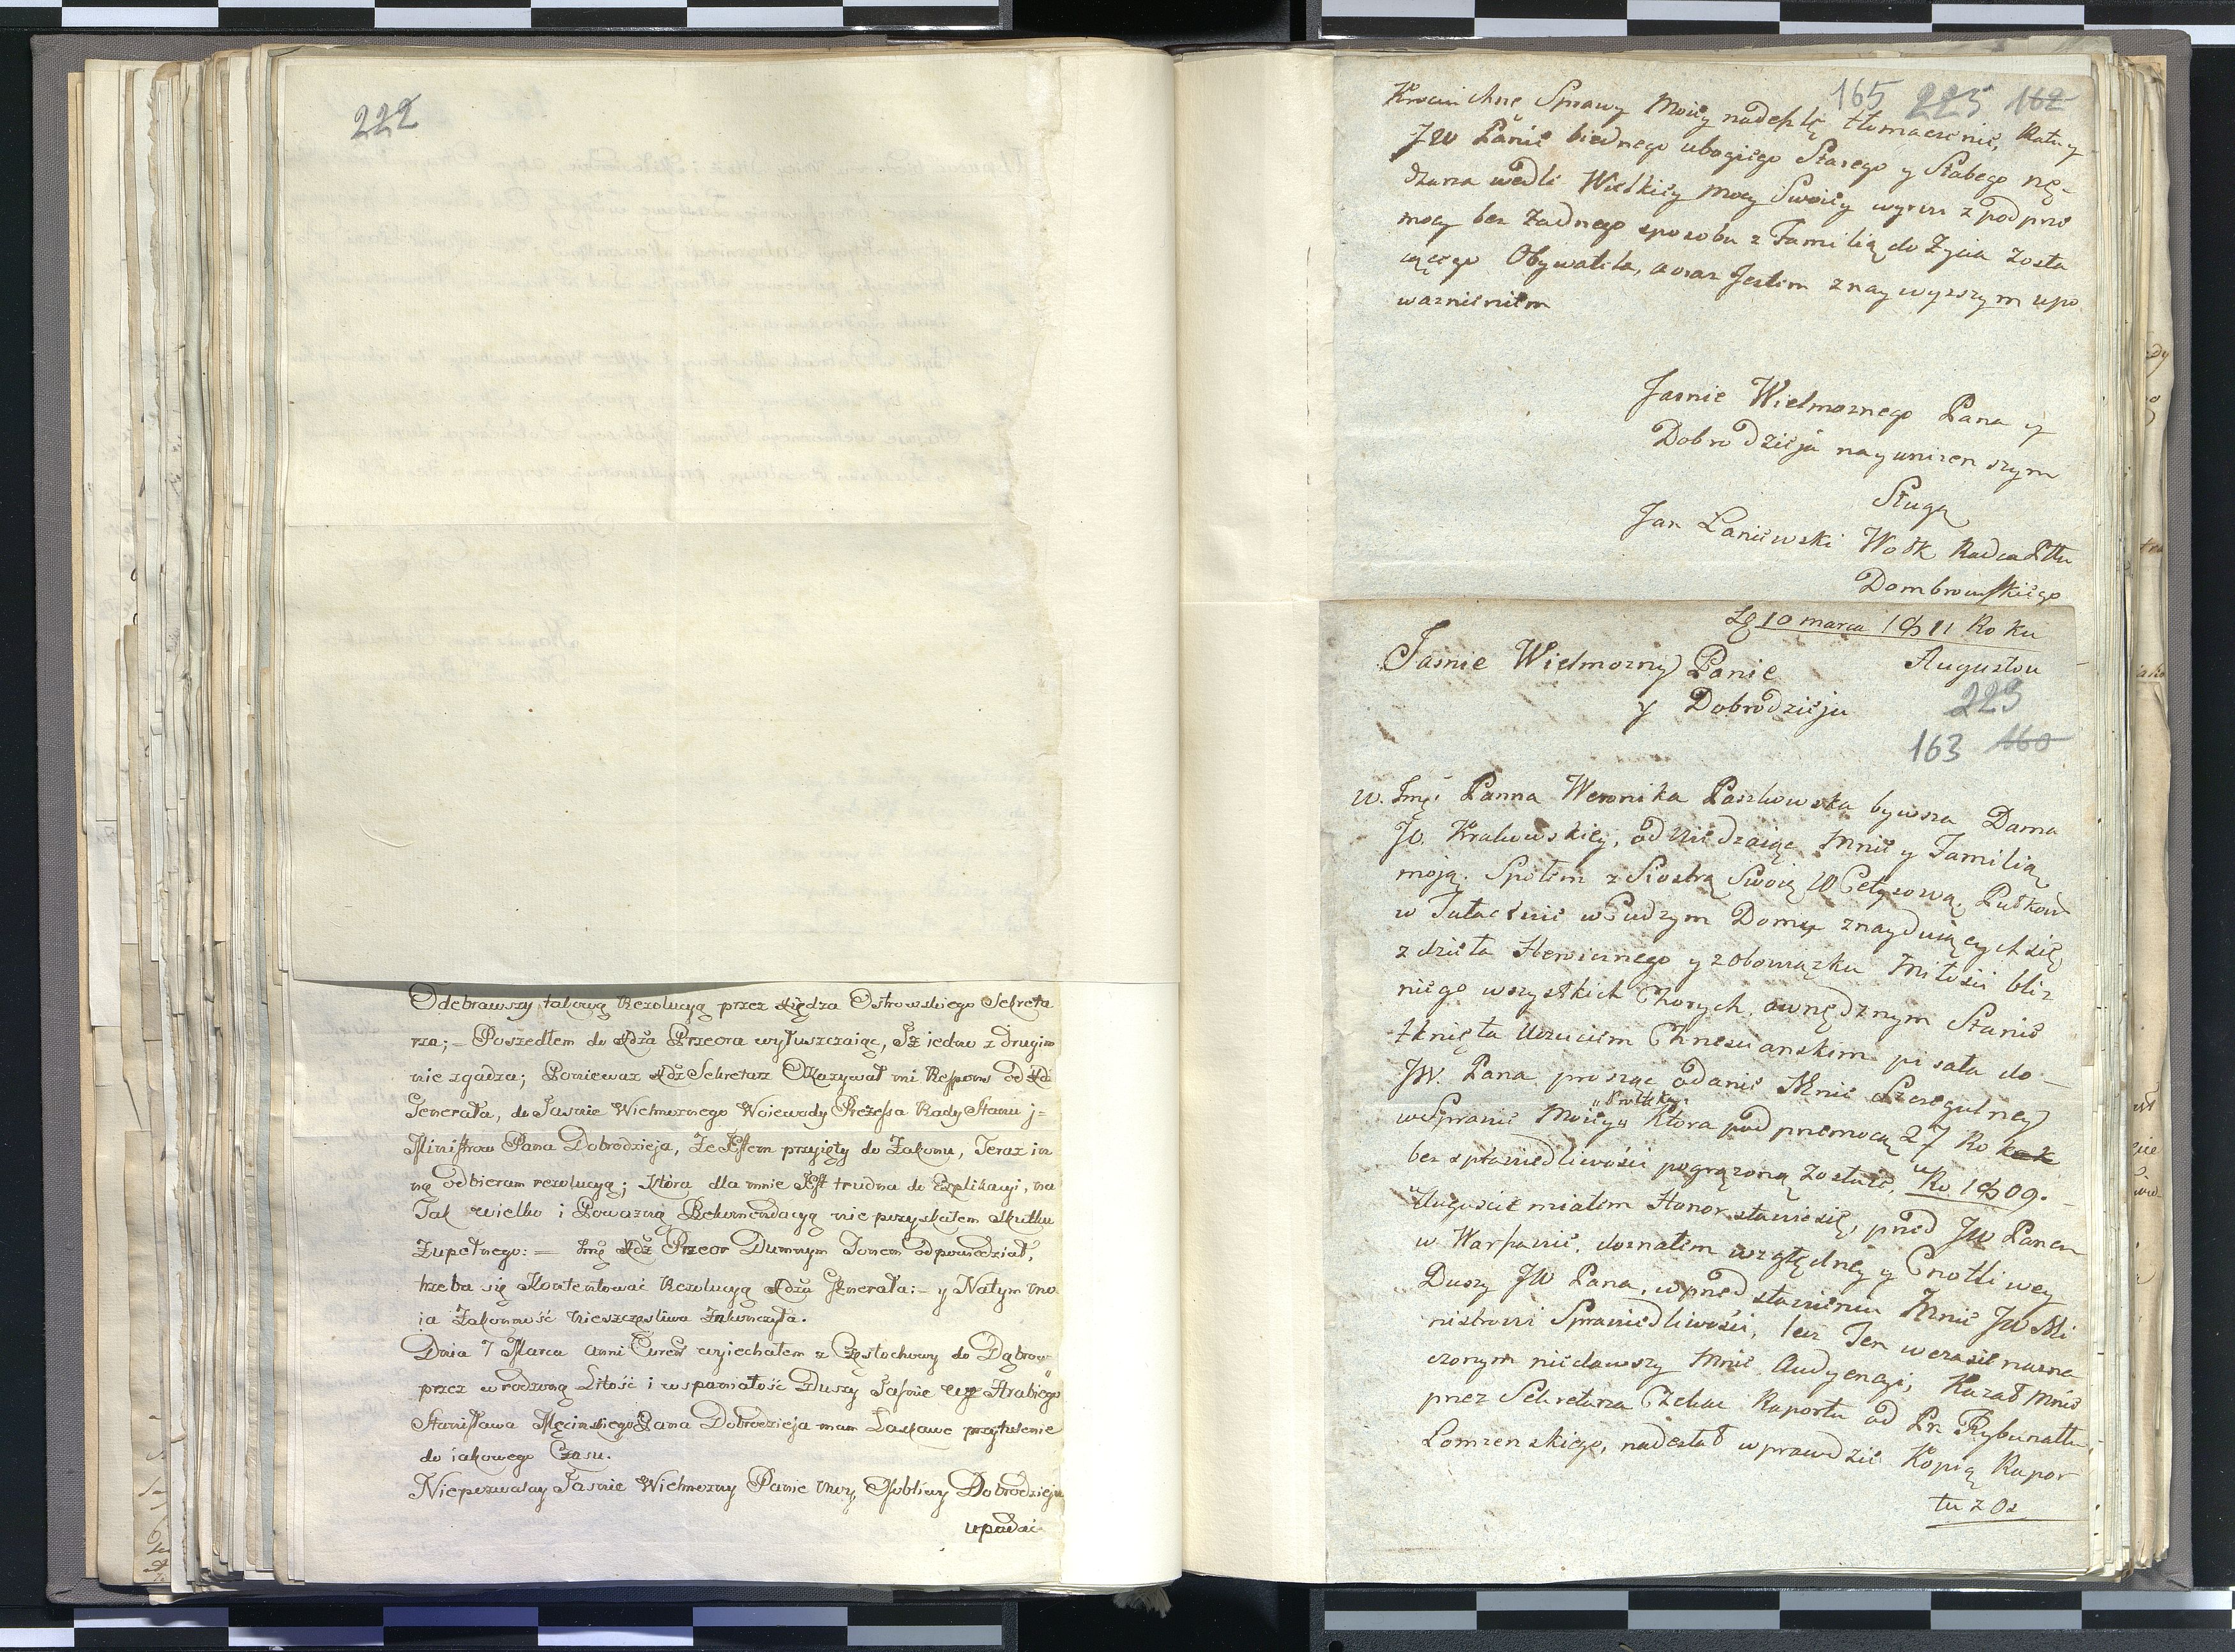 222
Odebrawszy takową Rezolucyą przez Xiędza Ostrowskiego Sekreta
rza; – Poszedłem do Xdza Przeora wyłuszczaiąc, Iż iedno z drugim
nie zgadza; Poniewaz Xdz Sekretarz Okazywał mi Respons od Xa
Generała, do Jasnie Wielmoznego Woiewody Prezessa Rady Stanu j=
Ministrow Pana Dobrodzieja, Ze Jestem przyięty do Zakonu, Teraz in
ną odbieram rezolucyą; Która dla mnie Jest trudna do Explikacyi, na
Tak wielko i Powazną Rekomendacyą nie pozyskałem skutku
Zupełnego: = Jmć Xdz Przeor Dumnym Tonem odpowiedział,
trzeba się Kontentować Rezolucyą Xdza Generała: – y Natym mo
ia Zakonność Nieszczęsliwa Zakonczyła.
Dnia 7 Marca anni Curen wyiechałem z Częstochowy do Dąbrow
przez wrodzoną Litość i wspaniałość Duszy Jasnie Hrabiego
Stanisława Męcinskiego Pana Dobrodzieja mam Łaskawe przytulenie
do iakowego Czasu.
Niepozwalay Jasnie Wielmozny Panie moy, Osobliwy Dobrodzieju
upadać
165 225 162
Sprawy Moiey nadeszlę tłomaczenie, Ratuy
JW Panie biednego ubogiego Starego y Słabego nę-
dzarza wedle Wielkiey Mocy Swoiey wyrwi z pod prze
mocy bez Zadnego sposobu z Familią do Zycia Zosta
iącego Obywatela, a oraz Jestem z naywyzszym upo
wazneniem
Jasnie Wielmoznego Pana y
Dobrodzieja nayunizenszym
Sługą
Jan Laniewski Wołk Radca Pttu
Dombrowskiego
10 marca 1811 Roku
Jasnie Wielmozny Panie Augustow
y Dobrodzieju
223
163 160
W. Jmć Panna Weronika Paszkowska bywsza Dama
JO. Krakowskiey, odwiedzaiąc Mnie y Familią
moją. Społem z Siostrą Swoią W Pułkow
w Tułactwie w Cudzym Domu znayduiących się
z dzieła Heroicznego y z obowiązku Miłosci bliz
niego wszystkich Chorych, a w nędznym Stanie
tknięta Uczuciem Chrzescianskim pisała do –
JW. Pana prosząc o danie Mnie Szczegulney
w Sprawie Moiey Która pod przemocą 27 Ro
bez sprawiedliwosci pogrązoną zostaie, Ro 1809.
Auguscie miałem Honor stawic się, przed JW Panem
w Warszawie, doznałem względney y Cnotliwey
Duszy JW Pana, w przedstawieniu Mnie JW Mi
nistrowi Sprawiedliwosci, lecz Ten w czasie nazna
czonym niedawszy Mnie Audyencyi, Kazał Mnie
przez Sekretarza Czekac Raportu od Pr Trybunału
Łomzenskiego, nadesłał wprawdzie Kopią Rapor
tu z Os